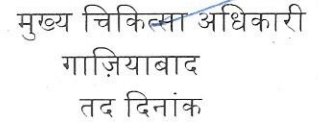 मुख्य चिकित्सा अधिकारी
गाज़ियाबाद
तद दिनांक